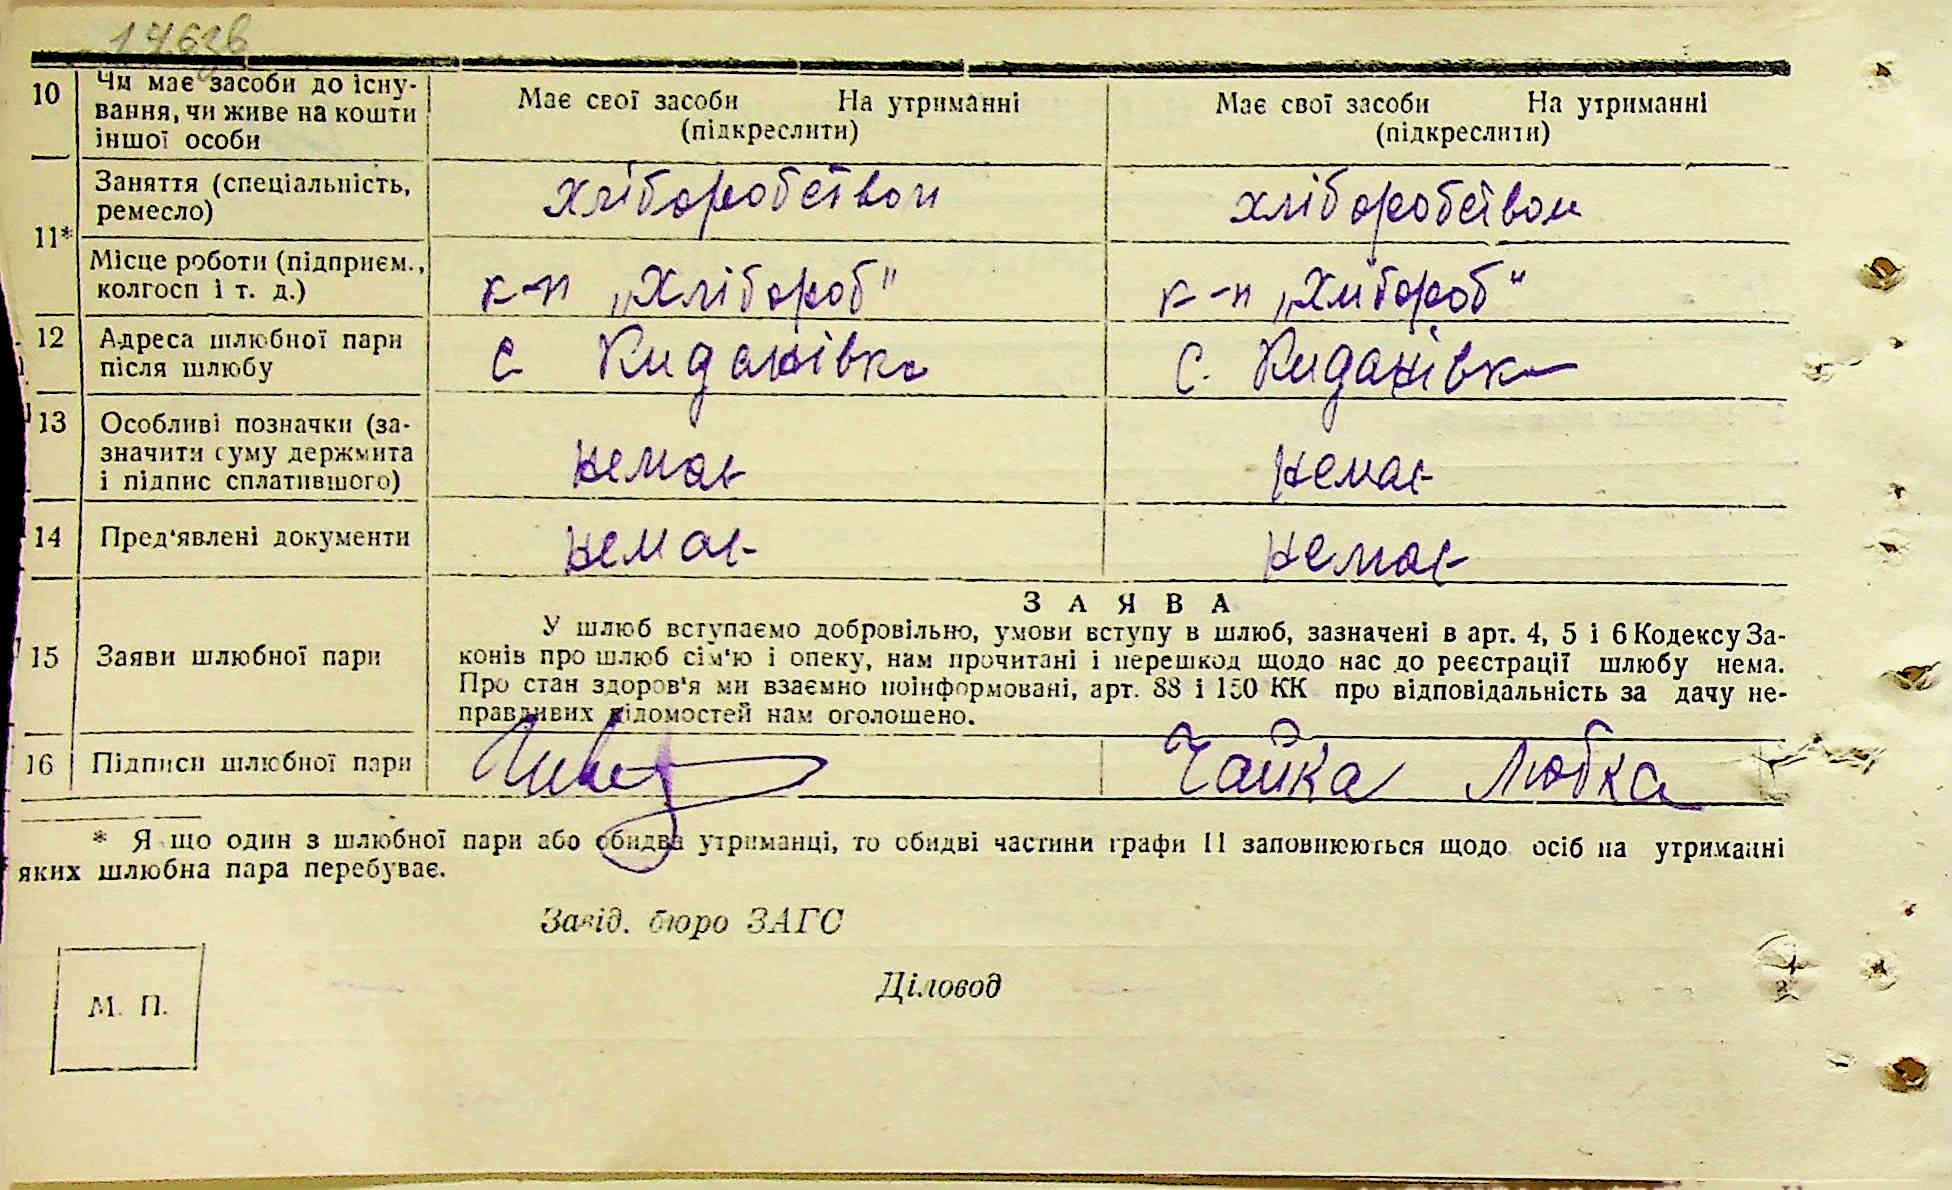 1762в
10 Чи має засоби до існу-
вання, чи живе на кошти
іншої особи
Має свої засоби На утриманні
(підкреслити)
Має свої засоби На утриманні
(підкреслити)
11* Заняття (спеціальність,
ремесло)
хліборобством хліборобством
Місце роботи (підприєм.,
колгосп і т. д.)
к-п „Хлібороб" к-п „Хлібороб"
12 Адреса шлюбної пари
після шлюбу
с. Киданівка с. Киданівка
13 Особливі позначки (за-
значити суму держмита
і підпис сплатившого)
немає немає
14 Пред'явлені документи немає немає
15 Заяви шлюбної пари
ЗАЯВА
У шлюб вступаємо добровільно, умови вступу в шлюб, зазначені в арт. 4, 5 і 6 Кодексу За-
конів про шлюб сім'ю і опеку, нам прочитані і перешкод щодо нас до реєстрації шлюбу нема.
Про стан здоров'я ми взаємно поінформовані, арт. 88 і 150 КК про відповідальність за дачу не-
правдивих відомостей нам оголошено.
16 Підписи шлюбної пари Чайка Любка
* Якщо один з шлюбної пари або обидва утриманці, то обидві частини графи 11 заповнюються щодо осіб на утриманні
яких шлюбна пара перебуває.
Завід. бюро ЗАГС
Діловод
М. П.